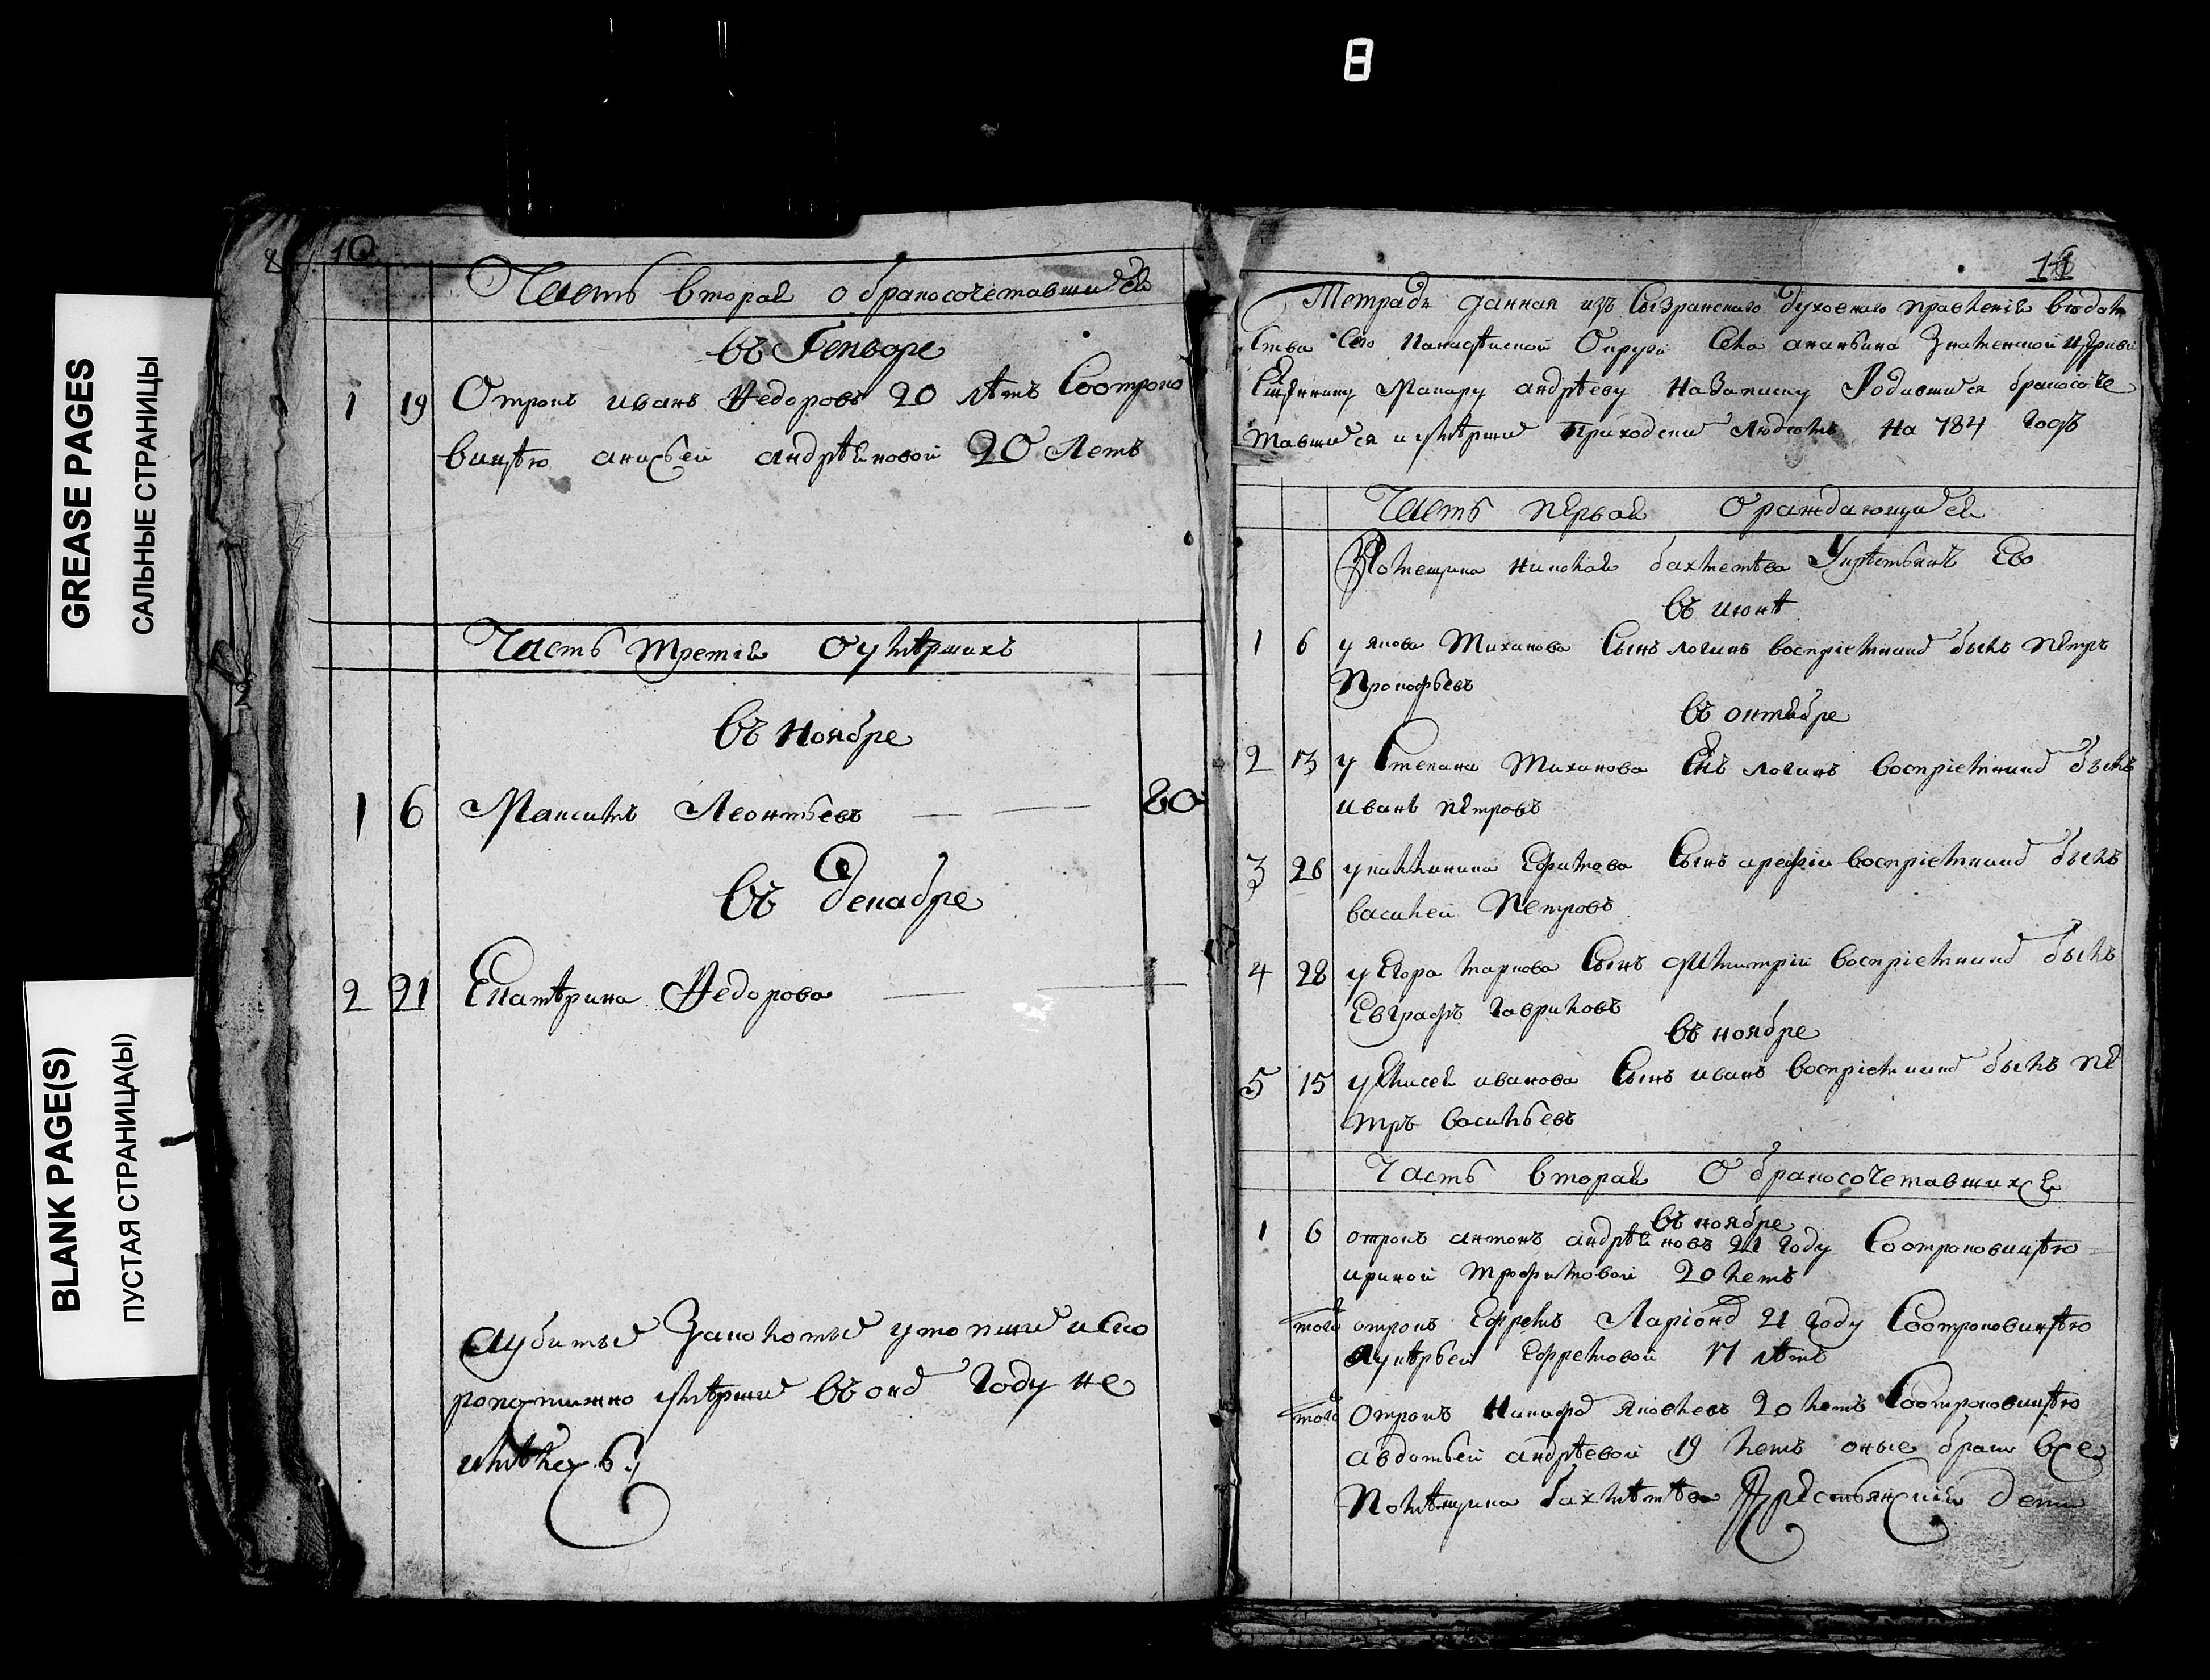 8
GREASE PAGES
САЛЬНЫЕ СТРАНИЦЫ
BLANK PAGE(S)
ПУСТАЯ СТРАНИЦА(Ы)
10
Часть вторая о бракосочетавшихся
въ Генваре
1 19 Отрокъ иванъ Ѳедоровъ 20 лѣтъ Сотроко
вицѣю анисьей андрѣяновой 20 Летъ
Часть третія о умѣршихъ
въ ноябре
1 6 Максимъ Леонтьевъ 80
въ декабре
2 21 Екатѣрина Ѳедорова
Аубитые Заколотые утопшие и Ско
ропостижно умѣршие въ оно году не
имѣлось
11
Тетрадь данная изъ Сызранскаго духовнаго правленія въ
ства Сего Округи Села ананьина Знаменской цркви
Сщеннику Макару андрѣеву На Записку Родившихся бракосоче
тавшихся и умѣрших Приходских Людемъ На 784 годъ
Часть первая о раждающихся
Помещика николая бахметева У крѣстьянъ Его
въ июнѣ
1 6 у якова Тиханова Сынъ логинъ воспріемникъ былъ петръ
Прокофьевъ
въ октябре
2 13 у Степана Тиханова Снъ логинъ воспріемникъ былъ
иванъ петровъ
3 26 у калинина Ефимова Сынъ арефіи воспріемникъ былъ
василей Петровъ
4 28 у Егора маркова Сынъ дмитрій воспріемникъ былъ
Евграфъ гавриловъ
въ ноябре
5 15 у Елисея иванова Сынъ иванъ воспріемникъ былъ пе
тръ васильевъ
Часть вторая О бракосочетавшихся
въ ноябре
1 6 отрокъ антонъ андрѣяновъ 21 году Сотроковицѣю
ириной трофимовой 20 летъ
того отрокъ Ефремъ Ларіоно 21 году Сотроковицѣю
лукѣрьей Ефремовой 17 лѣтъ
того Отрокъ Никифо яковлевъ 20 летъ Сотроковицѣю
авдотьей андрѣевой 19 летъ оные браки все
Помѣщика бахмѣтѣва крестьянскія дети